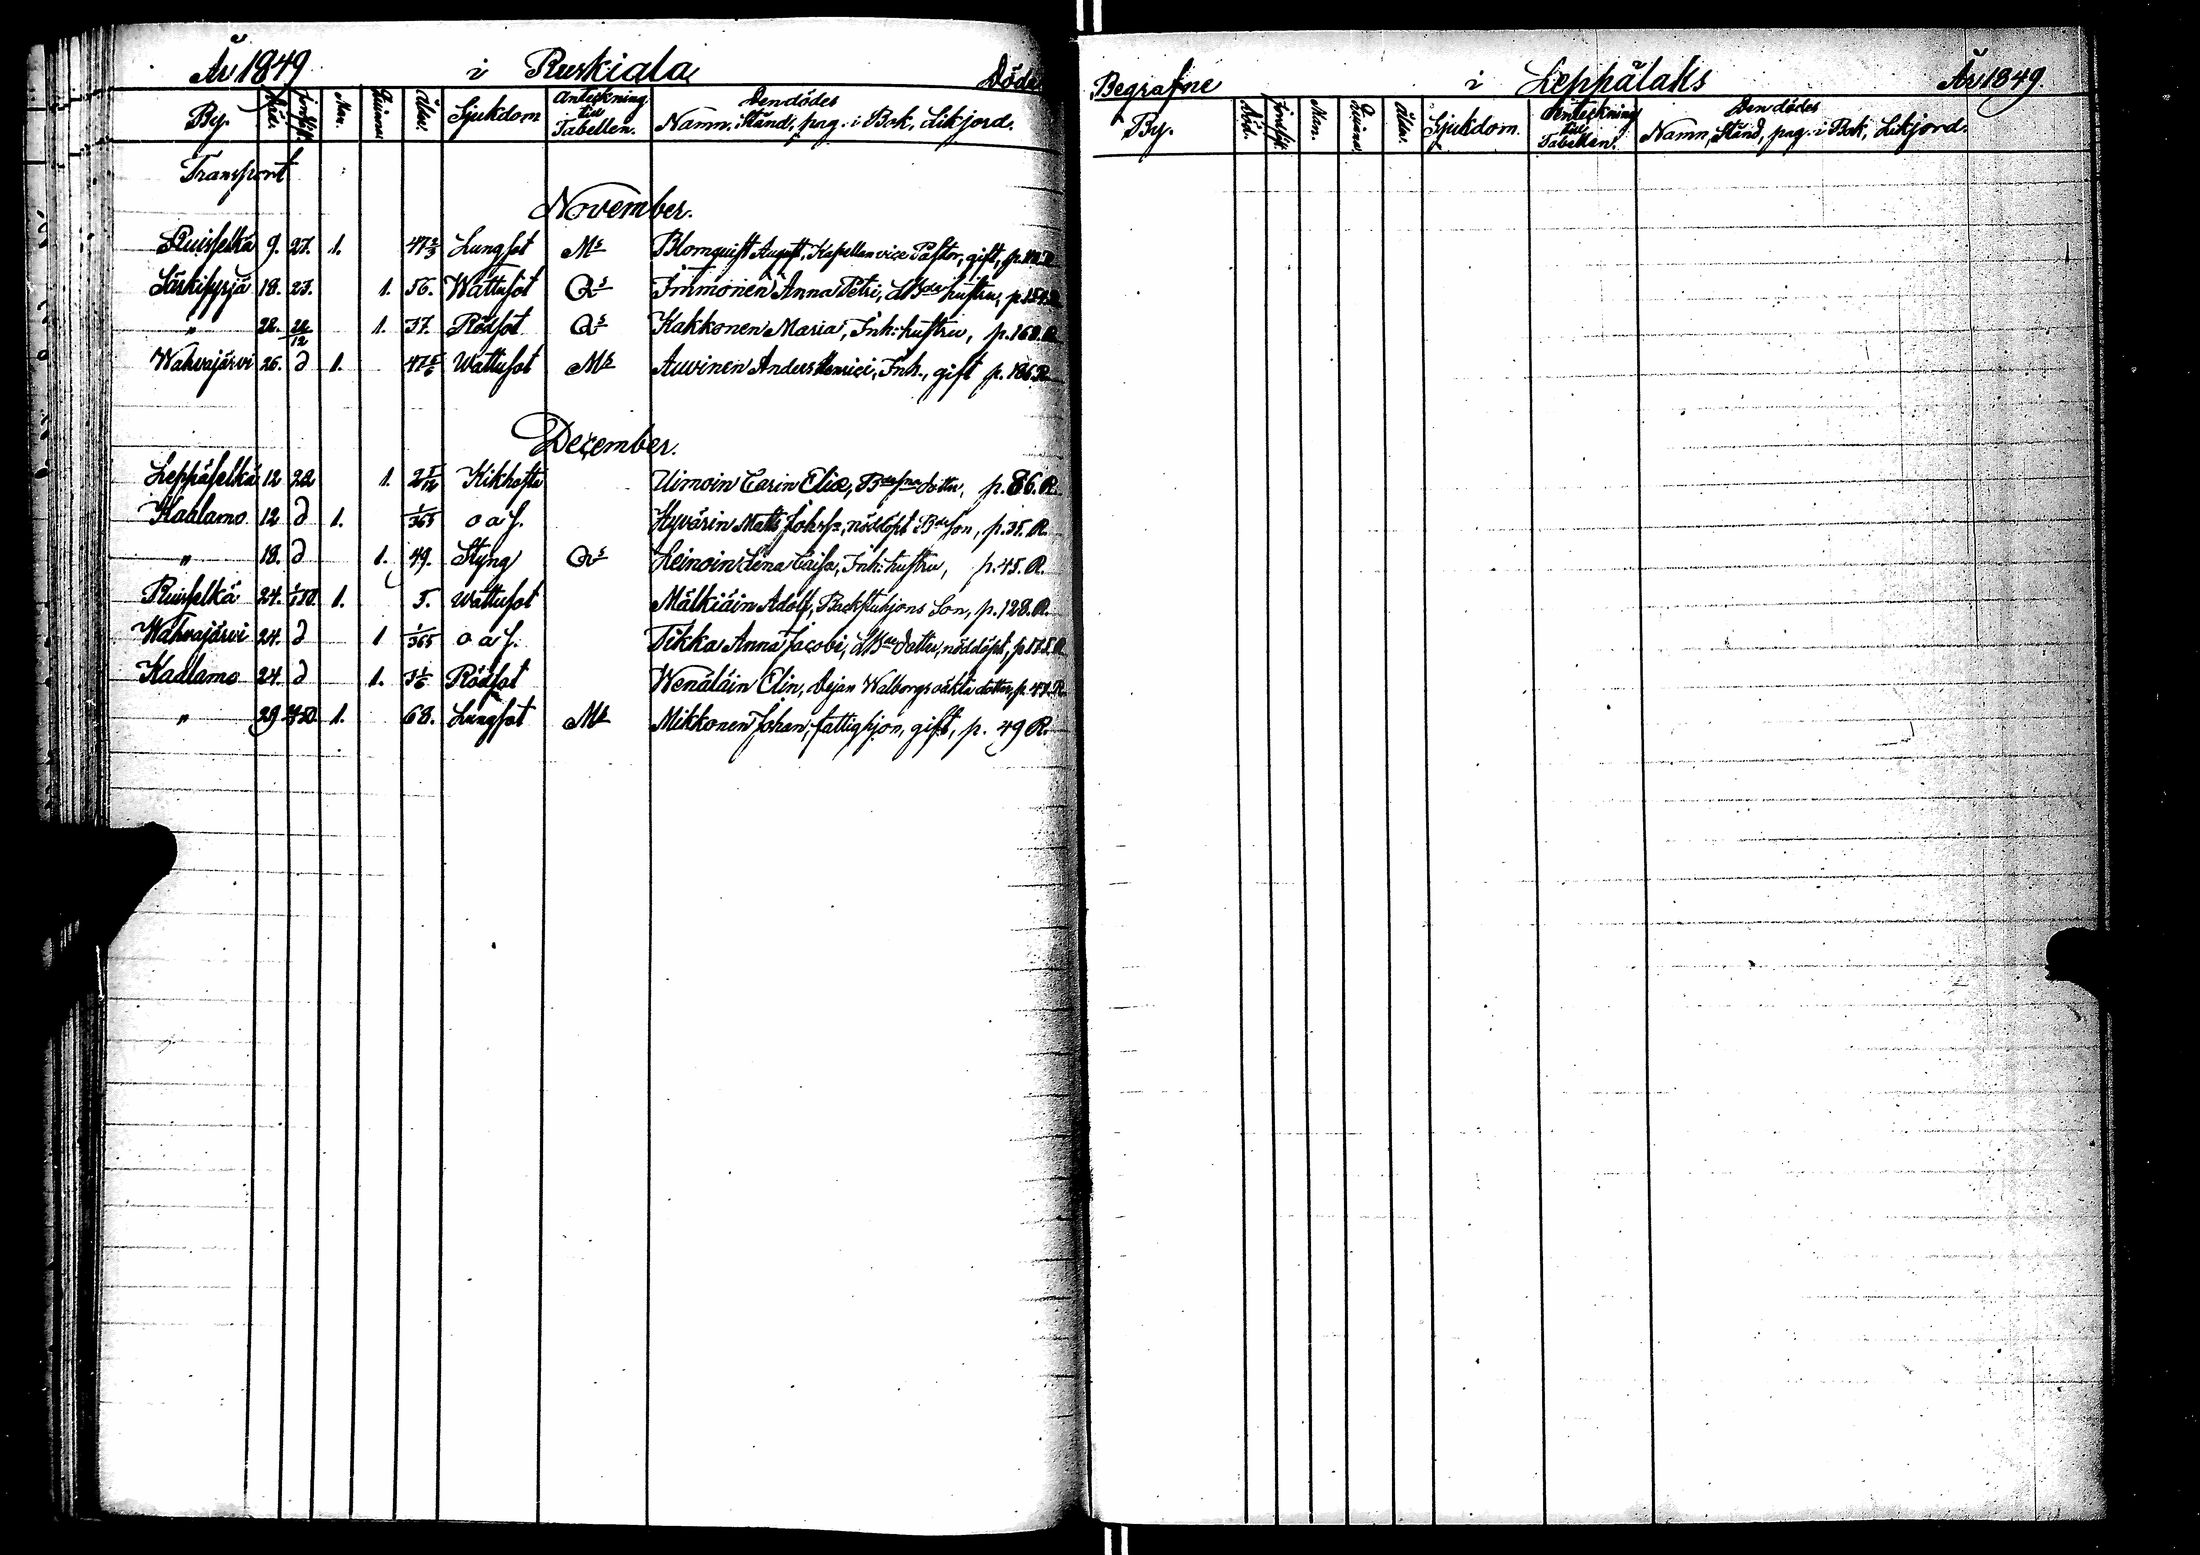 År 1849 i Ruskiala Döde
By. Död. Jordfst. Man. Qvinna. Ålder. Sjukdom Anteckning till Tabellen. Den dödes Namn, Stånd, pag. i Bok, Likjord.
Transport
November.
Ruisselkä 9. 27. 1. 47 2/3 Lungsot Ms Blomquist August, Kapellan vice Pastor, gift,
Särkisyrjä 18. 23. 1. 56. Wattusot Qs Immonen Anna Petri, LBdes hustru, p. 154. R
" 22. 26/12 1. 37. Rödsot Qs Kakkonen Maria, Inh: hustru, p. 168. R
Wahvajärvi 26. d 1. 47 5/6 Wattusot Ms Auvinen Anders Henrici, Inh., gift p. 186 R
December.
Leppäselkä 12 22 1. 2 5/12 Kikhosta Uimoin Carin Eliæ, dotter, p. 86. R.
Kaalamo 12 d 1. 1/365 o a f. Hyvärin Matts Johss, nöddöpt Bde son, p. 35. R.
" 18. d 1. 49. Styng Qs Leinoin Lena Caisa, Inh: hustru, p. 45. R.
Ruisselkä 24. 1/1 50. 1. 5. Wattusot Mälkiäin Adolf, Backstuhjons Son, p. 128. R.
Wahvajärvi 24. d 1 1/365 o a f. Tikka Anna Jacobi, LBde dotter, nöddöpt,
Kaalamo 24. d 1. 3 1/6 Rödsot Wenäläin Elin, dejan Walborgs oäkta dotter, p. 47. R.
" 29 1. 68. Lungsot Ms Mikkonen Johan, fattighjon, gift, p. 49 R.
Begrafne i Leppälaks År 1849.
By. Död. Jordfst. Man. Qvinna. Ålder. Sjukdom. Anteckning till Tabellen. Den dödes Namn, Stånd, pag. i Bok, Likjord.